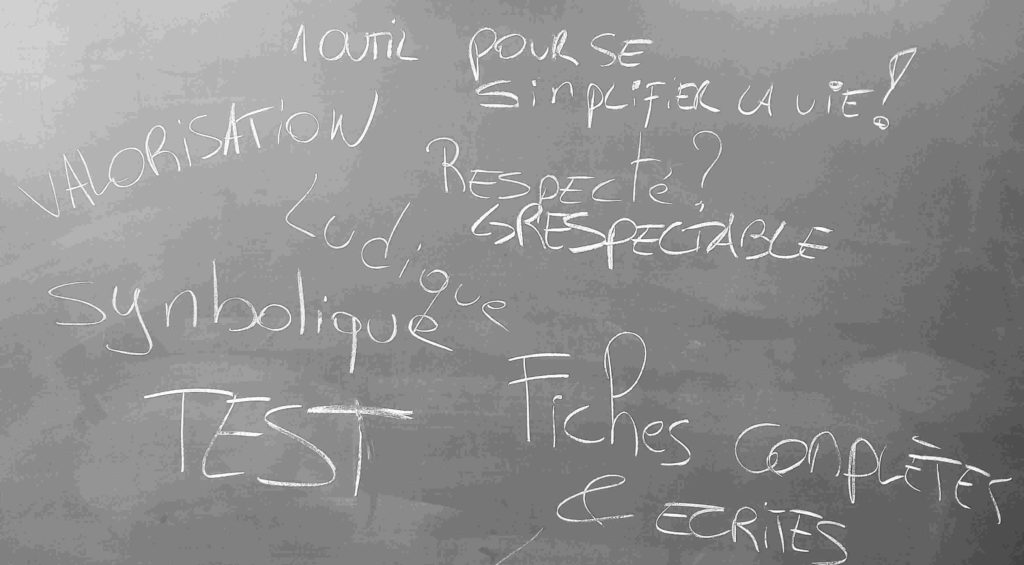 1 OUTIL POUR SE
SimPLiFIER LA ViE !
VALORiSATiON
RESPECté ?
↳ RESPECTABLE
Ludique
Symbolique
TEST
Fiches COMPLÈTET
& ECRITES